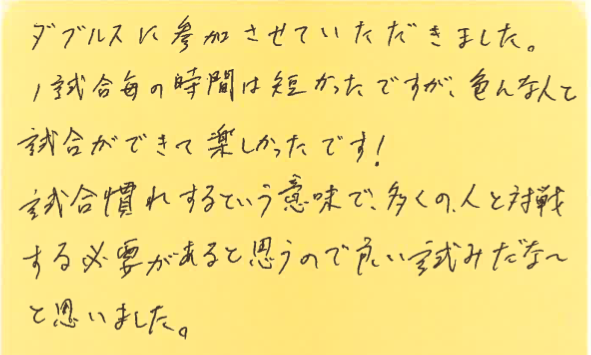 ダブルスに参加させていただきました。
1試合毎の時間は短かったですが、色んな人と
試合ができて楽しかったです!
試合慣れするという意味で、多くの人と対戦
する必要があると思うので良い試みだな〜
と思いました。